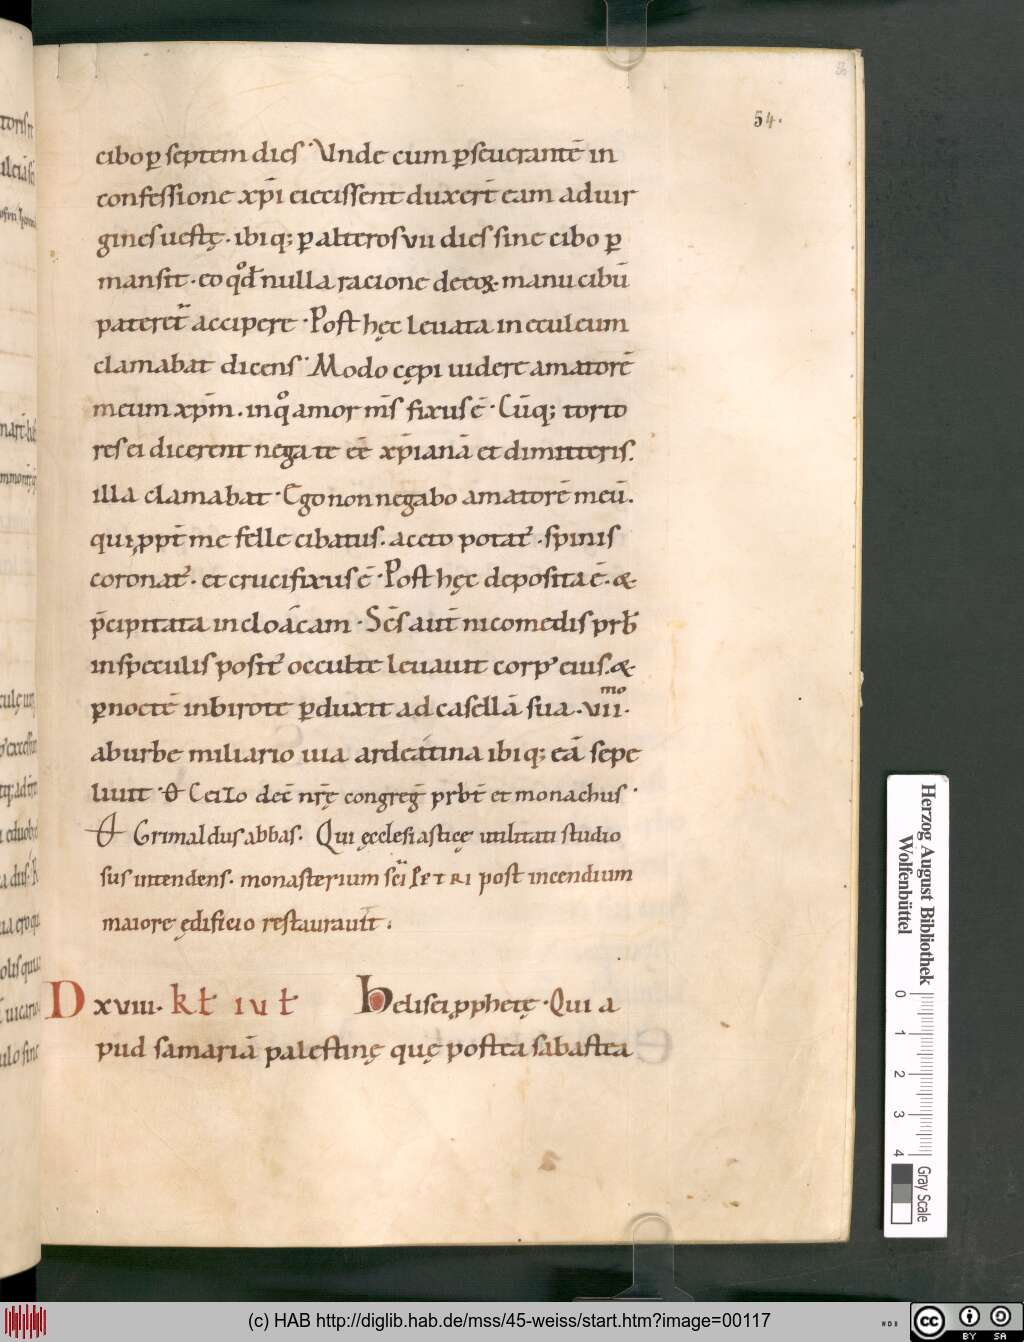 54.
cibo ꝑ septem dies Vnde cum ꝑseuerantē in
confessione xp̄i eiecissent duxer̄t eam ad uir
gines uestę. ibiq; ꝑ alteros vii dies sine cibo ꝑ
mansit. eo qd̄ nulla racione de eoꝝ manu cibū
pateret̄ accipere. Post hęc leuata in eculeum
clamabat dicens Modo cępi uidere amatorē
meum xp̄m. in qͦ amor m̄s fixus ē. Cūq; torto
res ei dicerent nega te eē xp̄ianā et dimitteris.
illa clamabat. Ego non negabo amatorē meū.
qui ꝓpt̄ me felle cibatus. aceto potat᷒. spinis
coronat᷒. et crucifixus ē. Post hęc deposita ē. &
p̄cipitata in cloācam. Sc̄s aut̄ nicomedis prb̄
in speculis posit᷒ occulte leuauit corp᷒ eius. &
ꝑ noctē in birote ꝑduxit ad casellā sua. viimo.
ab urbe miliario uia ardeatina ibiq; eā sepe
liuit. Et Ceizo dec̄ nr̄ę congreḡ prbt̄ et monachus.
Et Grimaldus abbas. Qui ęcclesiasticę utilitati studio
sus intendens. monasterium sc̄i PETRI post incendium
maiore ędificio restaurauit.
D xviii. kt iut helisei ꝓphetę. Qui a
pud samariā palestinę quę postea sabastea
Herzog August Bibliothek
Wolfenbüttel
0 1 2 3 4
Gray Scale
(c) HAB http://diglib.hab.de/mss/45-weiss/start.htm?image=00117
WDB
cc BY SA